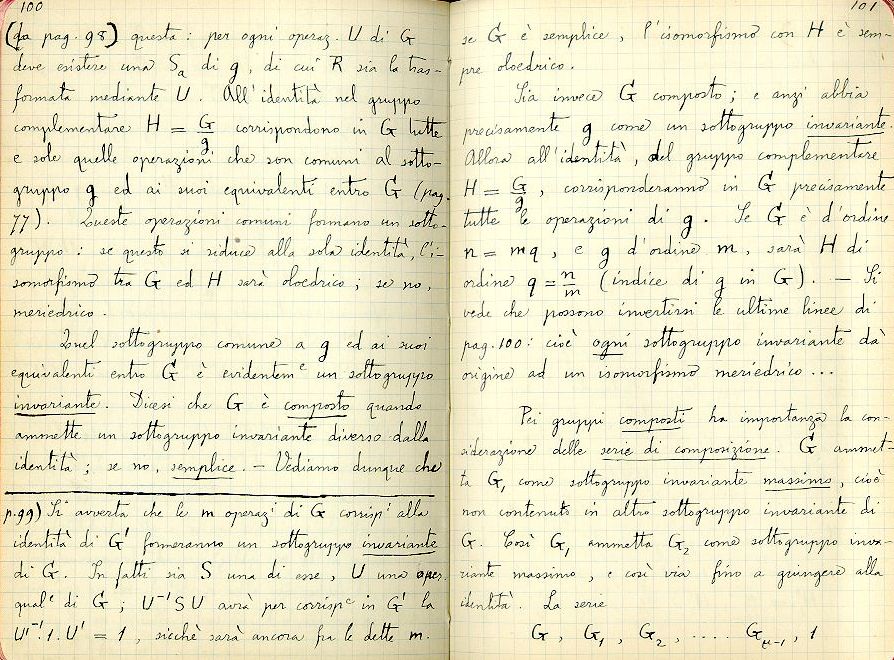 100
(da pag. 98) questa: per ogni operaz. U di G
deve esistere una Sₐ di g, di cui R sia la tras-
formata mediante U. All'identità nel gruppo
complementare H = G/g corrispondono in G tutte
e sole quelle operazioni che son comuni al sotto-
gruppo g ed ai suoi equivalenti entro G (pag.
77). Queste operazioni comuni formano un sotto-
gruppo: se questo si riduce alla sola identità, l'i-
somorfismo tra G ed H sarà oloedrico; se no,
meriedrico.
Quel sottogruppo comune a g ed ai suoi
equivalenti entro G è evidentemᵉ un sottogruppo
invariante. Dicesi che G è composto quando
ammette un sottogruppo invariante diverso dalla
identità; se no, semplice. – Vediamo dunque che
p.99) Si avverta che le m operazⁱ di G corrispⁱ alla
identità di G' formeranno un sottogruppo invariante
di G. In fatti sia S una di esse, U una oper.
qualᵉ di G; U⁻¹SU avrà per corrispᵉ in G' la
U'⁻¹.1.U' = 1, sicchè sarà ancora fra le dette m.
101
se G è semplice, l'isomorfismo con H è sem-
pre oloedrico.
Sia invece G composto; e anzi abbia
precisamente g come un sottogruppo invariante.
Allora all'identità, del gruppo complementare
H = G/g, corrisponderanno in G precisamente
tutte le operazioni di g. Se G è d'ordine
n = mq, e g d'ordine m, sarà H di
ordine q = n/m (indice di g in G). – Si
vede che possono invertirsi le ultime linee di
pag. 100: cioè ogni sottogruppo invariante dà
origine ad un isomorfismo meriedrico...
Pei gruppi composti ha importanza la con-
siderazione delle serie di composizione. G ammet-
ta G₁ come sottogruppo invariante massimo, cioè
non contenuto in altro sottogruppo invariante di
G. Così G₁ ammetta G₂ come sottogruppo inva-
riante massimo, e così via fino a giungere alla
identità. La serie
G, G₁, G₂, .... G_μ₋₁, 1